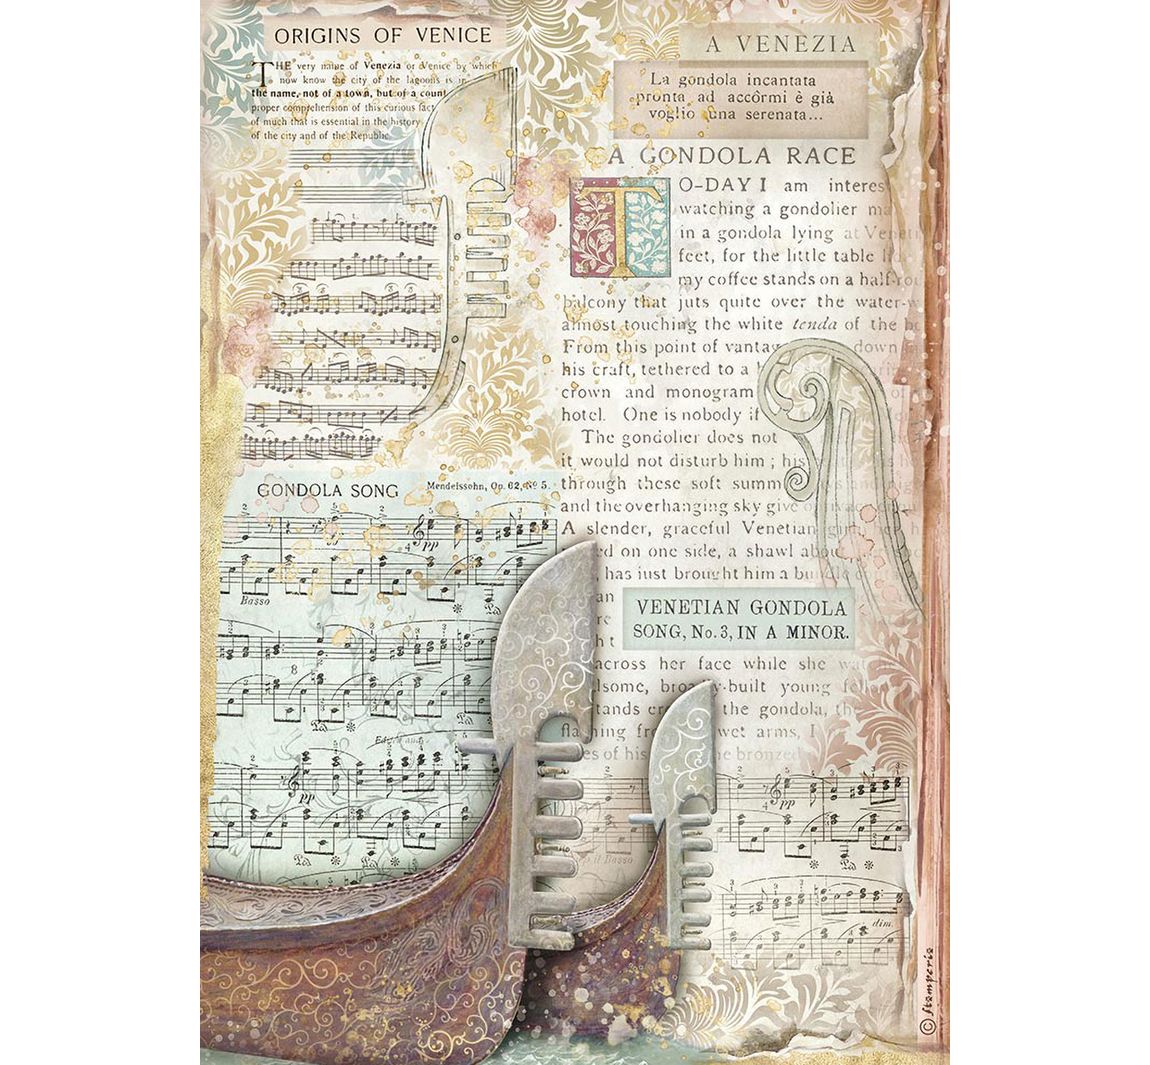 ORIGINS OF VENICE
THE very name of Venezia or Venice by which
now know the city of the lagoons is in
the name, not of a town, but of a count
proper comprehension of this curious fact
of much that is essential in the history
of the city and of the Republic
GONDOLA SONG
Mendelssohn, Op. 62, Nº 5.
pp
Basso
8
pp
A VENEZIA
La gondola incantata
pronta ad accôrmi è già
voglio una serenata...
A GONDOLA RACE
TO-DAY I am interes
watching a gondolier ma
in a gondola lying at Veneti
feet, for the little table
my coffee stands on a half-rou
balcony that juts quite over the water-w
almost touching the white tenda of the
From this point of vantag down
his craft, tethered to a
crown and monogram of
hotel. One is nobody if
The gondolier does not
it would not disturb him ; his
through these soft summ
and the overhanging sky give
A slender, graceful Venetian
on one side, a shawl abou
has just brought him a bundle
an
VENETIAN GONDOLA
SONG, No. 3, IN A MINOR.
across her face while she wat
lsome, broadly-built young fello
tands the gondola, the
wet arms, I
of his bronzed
pp
Basso
dim.
© stamperia